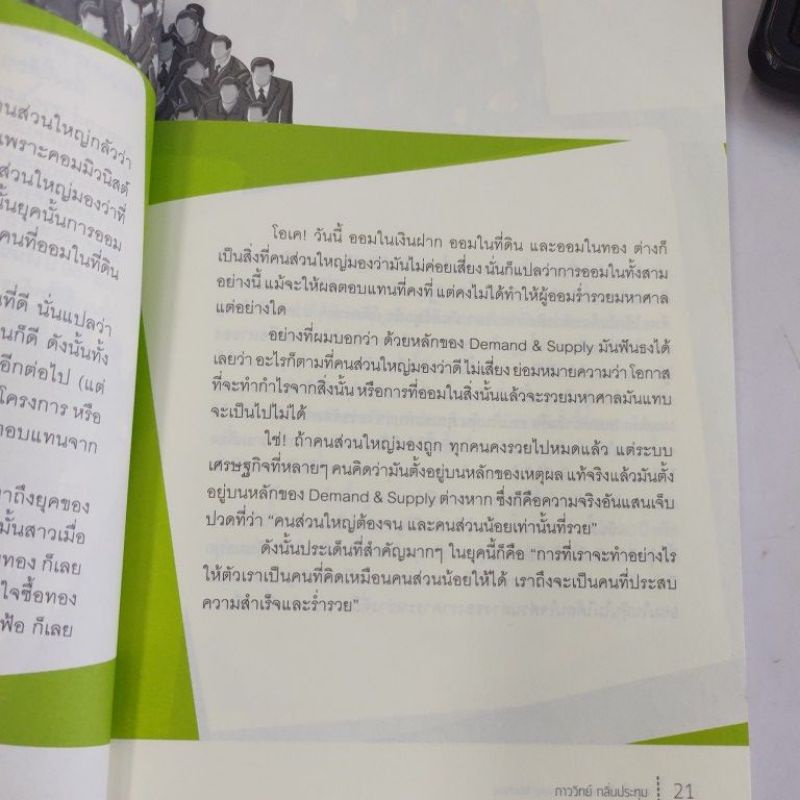 นส่วนใหญ่กลัวว่า
เพราะคอมมิวนิสต์
ส่วนใหญ่มองว่าที่
นั้นยุคนั้นการออม
คนที่ออมในที่ดิน
ที่ดี นั่นแปลว่า
นก็ดี ดังนั้นทั้ง
อีกต่อไป (แต่
โครงการ หรือ
ตอบแทนจาก
าถึงยุคของ
มั้นสาวเมื่อ
ทอง ก็เลย
ใจซื้อทอง
ฟ้อ ก็เลย
โอเค! วันนี้ ออมในเงินฝาก ออมในที่ดิน และออมในทอง ต่างก็
เป็นสิ่งที่คนส่วนใหญ่มองว่ามันไม่ค่อยเสี่ยง นั่นก็แปลว่าการออมในทั้งสาม
อย่างนี้ แม้จะให้ผลตอบแทนที่คงที่ แต่คงไม่ได้ทำให้ผู้ออมร่ำรวยมหาศาล
แต่อย่างใด
อย่างที่ผมบอกว่า ด้วยหลักของ Demand & Supply มันฟันธงได้
เลยว่า อะไรก็ตามที่คนส่วนใหญ่มองว่าดี ไม่เสี่ยง ย่อมหมายความว่า โอกาส
ที่จะทำกำไรจากสิ่งนั้น หรือการที่ออมในสิ่งนั้นแล้วจะรวยมหาศาลมันแทบ
จะเป็นไปไม่ได้
ใช่! ถ้าคนส่วนใหญ่มองถูก ทุกคนคงรวยไปหมดแล้ว แต่ระบบ
เศรษฐกิจที่หลายๆ คนคิดว่ามันตั้งอยู่บนหลักของเหตุผล แท้จริงแล้วมันตั้ง
อยู่บนหลักของ Demand & Supply ต่างหาก ซึ่งก็คือความจริงอันแสนเจ็บ
ปวดที่ว่า "คนส่วนใหญ่ต้องจน และคนส่วนน้อยเท่านั้นที่รวย"
ดังนั้นประเด็นที่สำคัญมากๆ ในยุคนี้ก็คือ "การที่เราจะทำอย่างไร
ให้ตัวเราเป็นคนที่คิดเหมือนคนส่วนน้อยให้ได้ เราถึงจะเป็นคนที่ประสบ
ความสำเร็จและร่ำรวย"
ภาววิทย์ กลิ่นประทุม 21